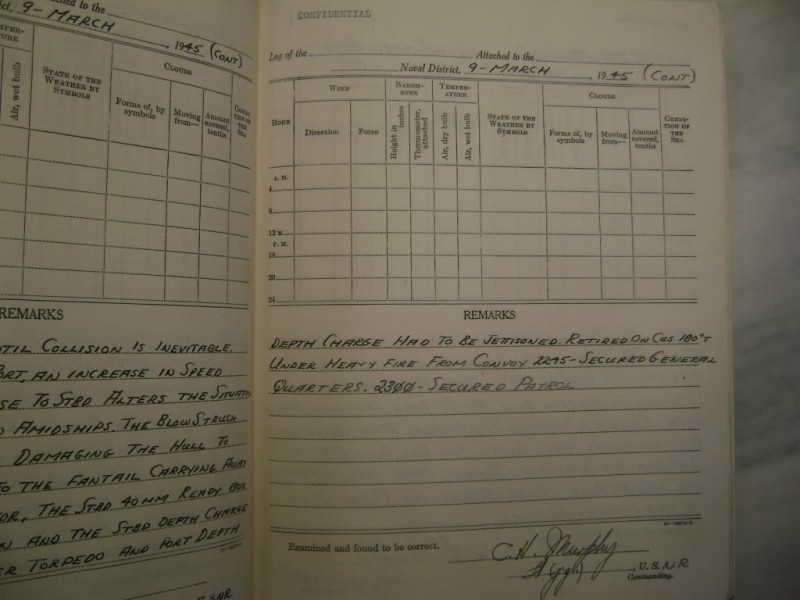 ched to the
ct, 9-MARCH, 1945 (CONT)
TURE
Air, wet bulb
STATE OF THE
WEATHER BY
SYMBOLS
CLOUDS
Forms of, by
symbols
Moving
from—
Amount
covered,
tenths
REMARKS
TIL COLLISION IS INEVITABLE.
ORT, AN INCREASE IN SPEED
SE TO STBD ALTERS THE SITUATI
AMIDSHIPS. THE BLOW STRUCK
DAMAGING THE HULL TO
TO THE FANTAIL CARRYING AWAY
OR, THE STBD 40MM READY BOX
AND THE STBD DEPTH CHARGE
ER TORPEDO AND PORT DEPTH
CONFIDENTIAL
Log of the
Attached to the
Naval District, 9-MARCH, 1945 (CONT)
HOUR
WIND
Direction
Force
BAROM-
ETER
Height in inches
Thermometer, attached
TEMPER-
ATURE
Air, dry bulb
Air, wet bulb
STATE OF THE
WEATHER BY
SYMBOLS
CLOUDS
Forms of, by
symbols
Moving
from—
Amount
covered,
tenths
CONDI-
TION OF
THE
SEA
A. M.
4
8
12 M
P. M.
16
20
24
REMARKS
DEPTH CHARGE HAD TO BE JETTISONED. RETIRED ON CUS 180°T
UNDER HEAVY FIRE FROM CONVOY 2245-SECURED GENERAL
QUARTERS. 2300-SECURED PATROL
Examined and found to be correct.
C. H. Murphy
Lt (jg), U. S. N. R
Commanding.